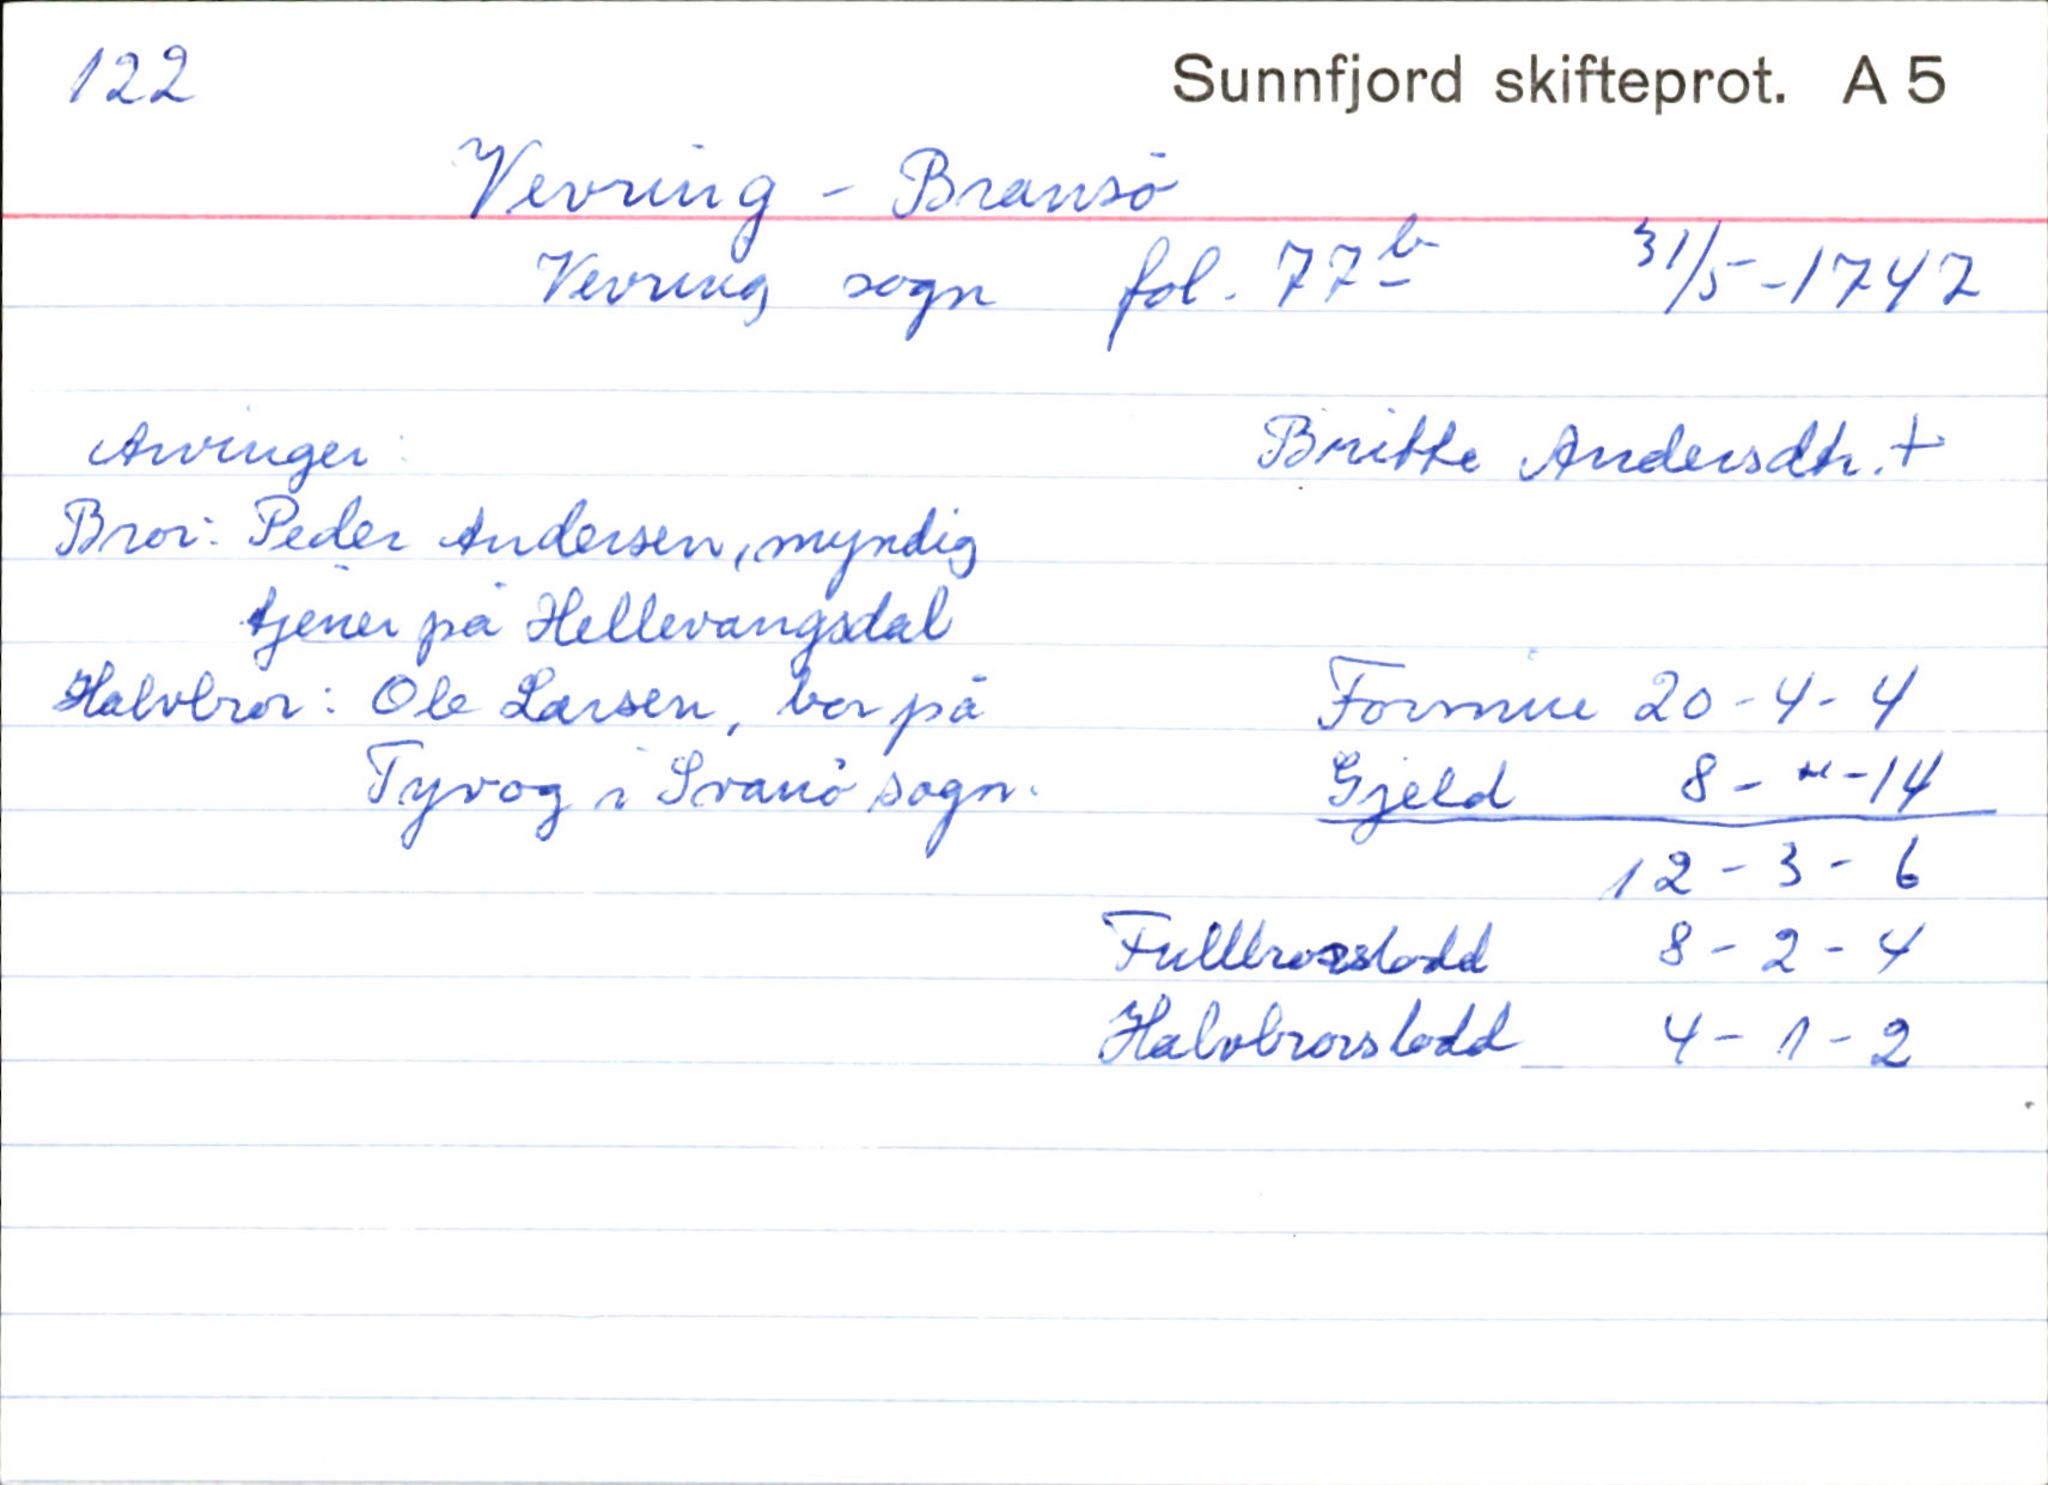 122
Sunnfjord skifteprot. A 5
Vevring - Bransö
Vevring sogn fol. 77b 31/5-1747
Arvinger: Britte Andersdtr. +
Bror: Peder Andersen, myndig
tjener på Hellevangsdal
Halvbror: Ole Larsen, bor på Formue 20-4-4
Tyvog i Svanö sogn. Gjeld 8-"-14
12-3-6
Fullbrorslodd 8-2-4
Halvbrorslodd 4-1-2